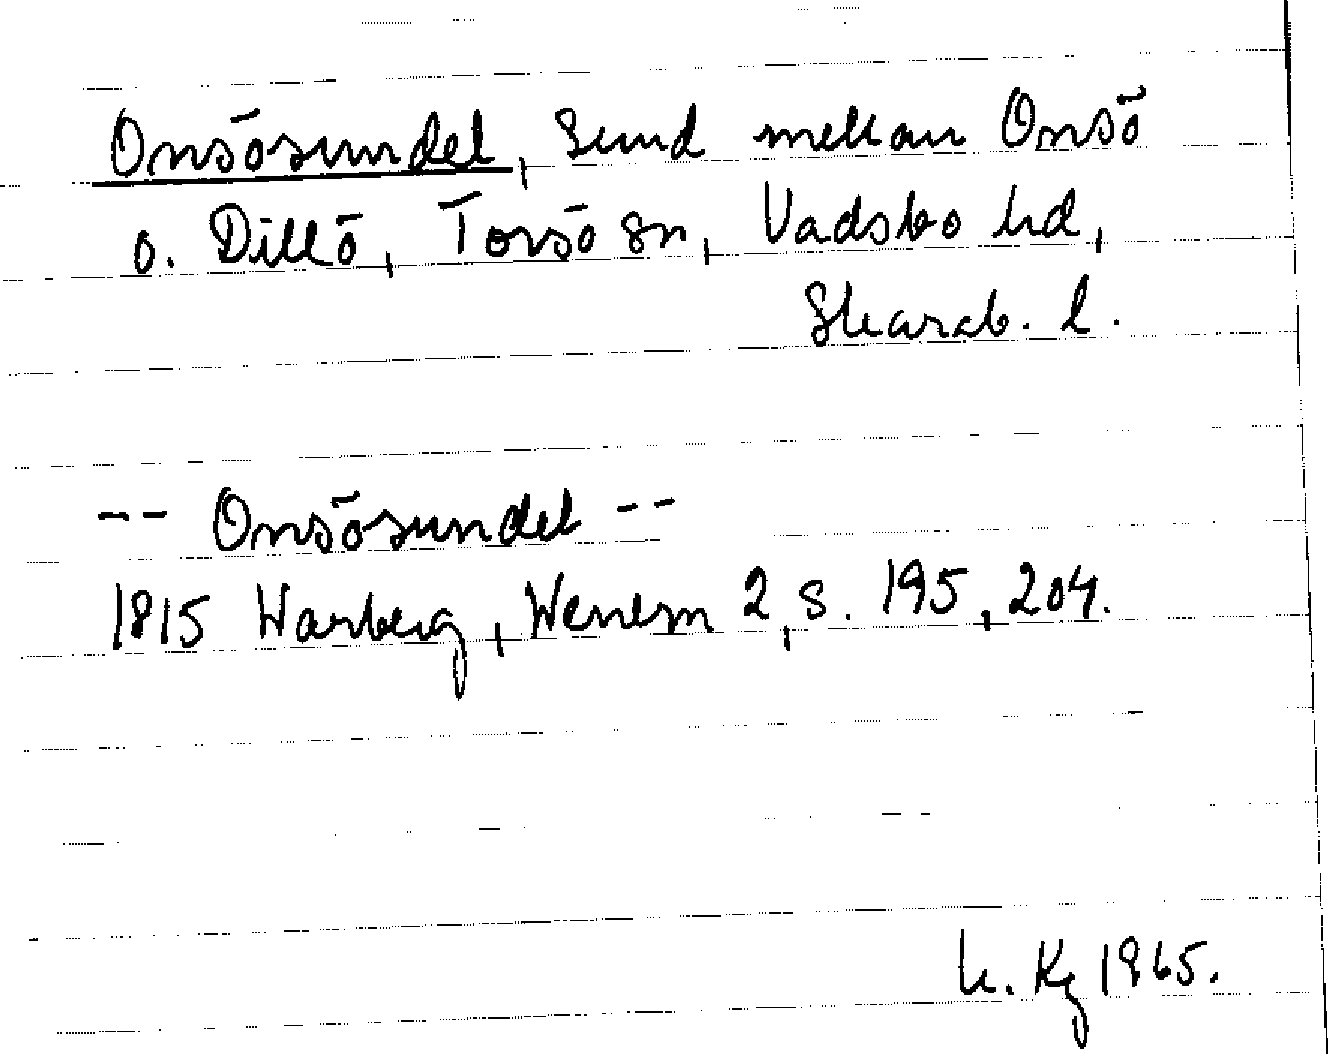 Onsösundet, Sund mellan Onsö
o. Dillö, Torsö sn, Vadsbo hd,
Skarab. l.
-- Onsösundet --
1815 Warberg, Wenern 2, s. 195, 204.
K. Kg 1965.